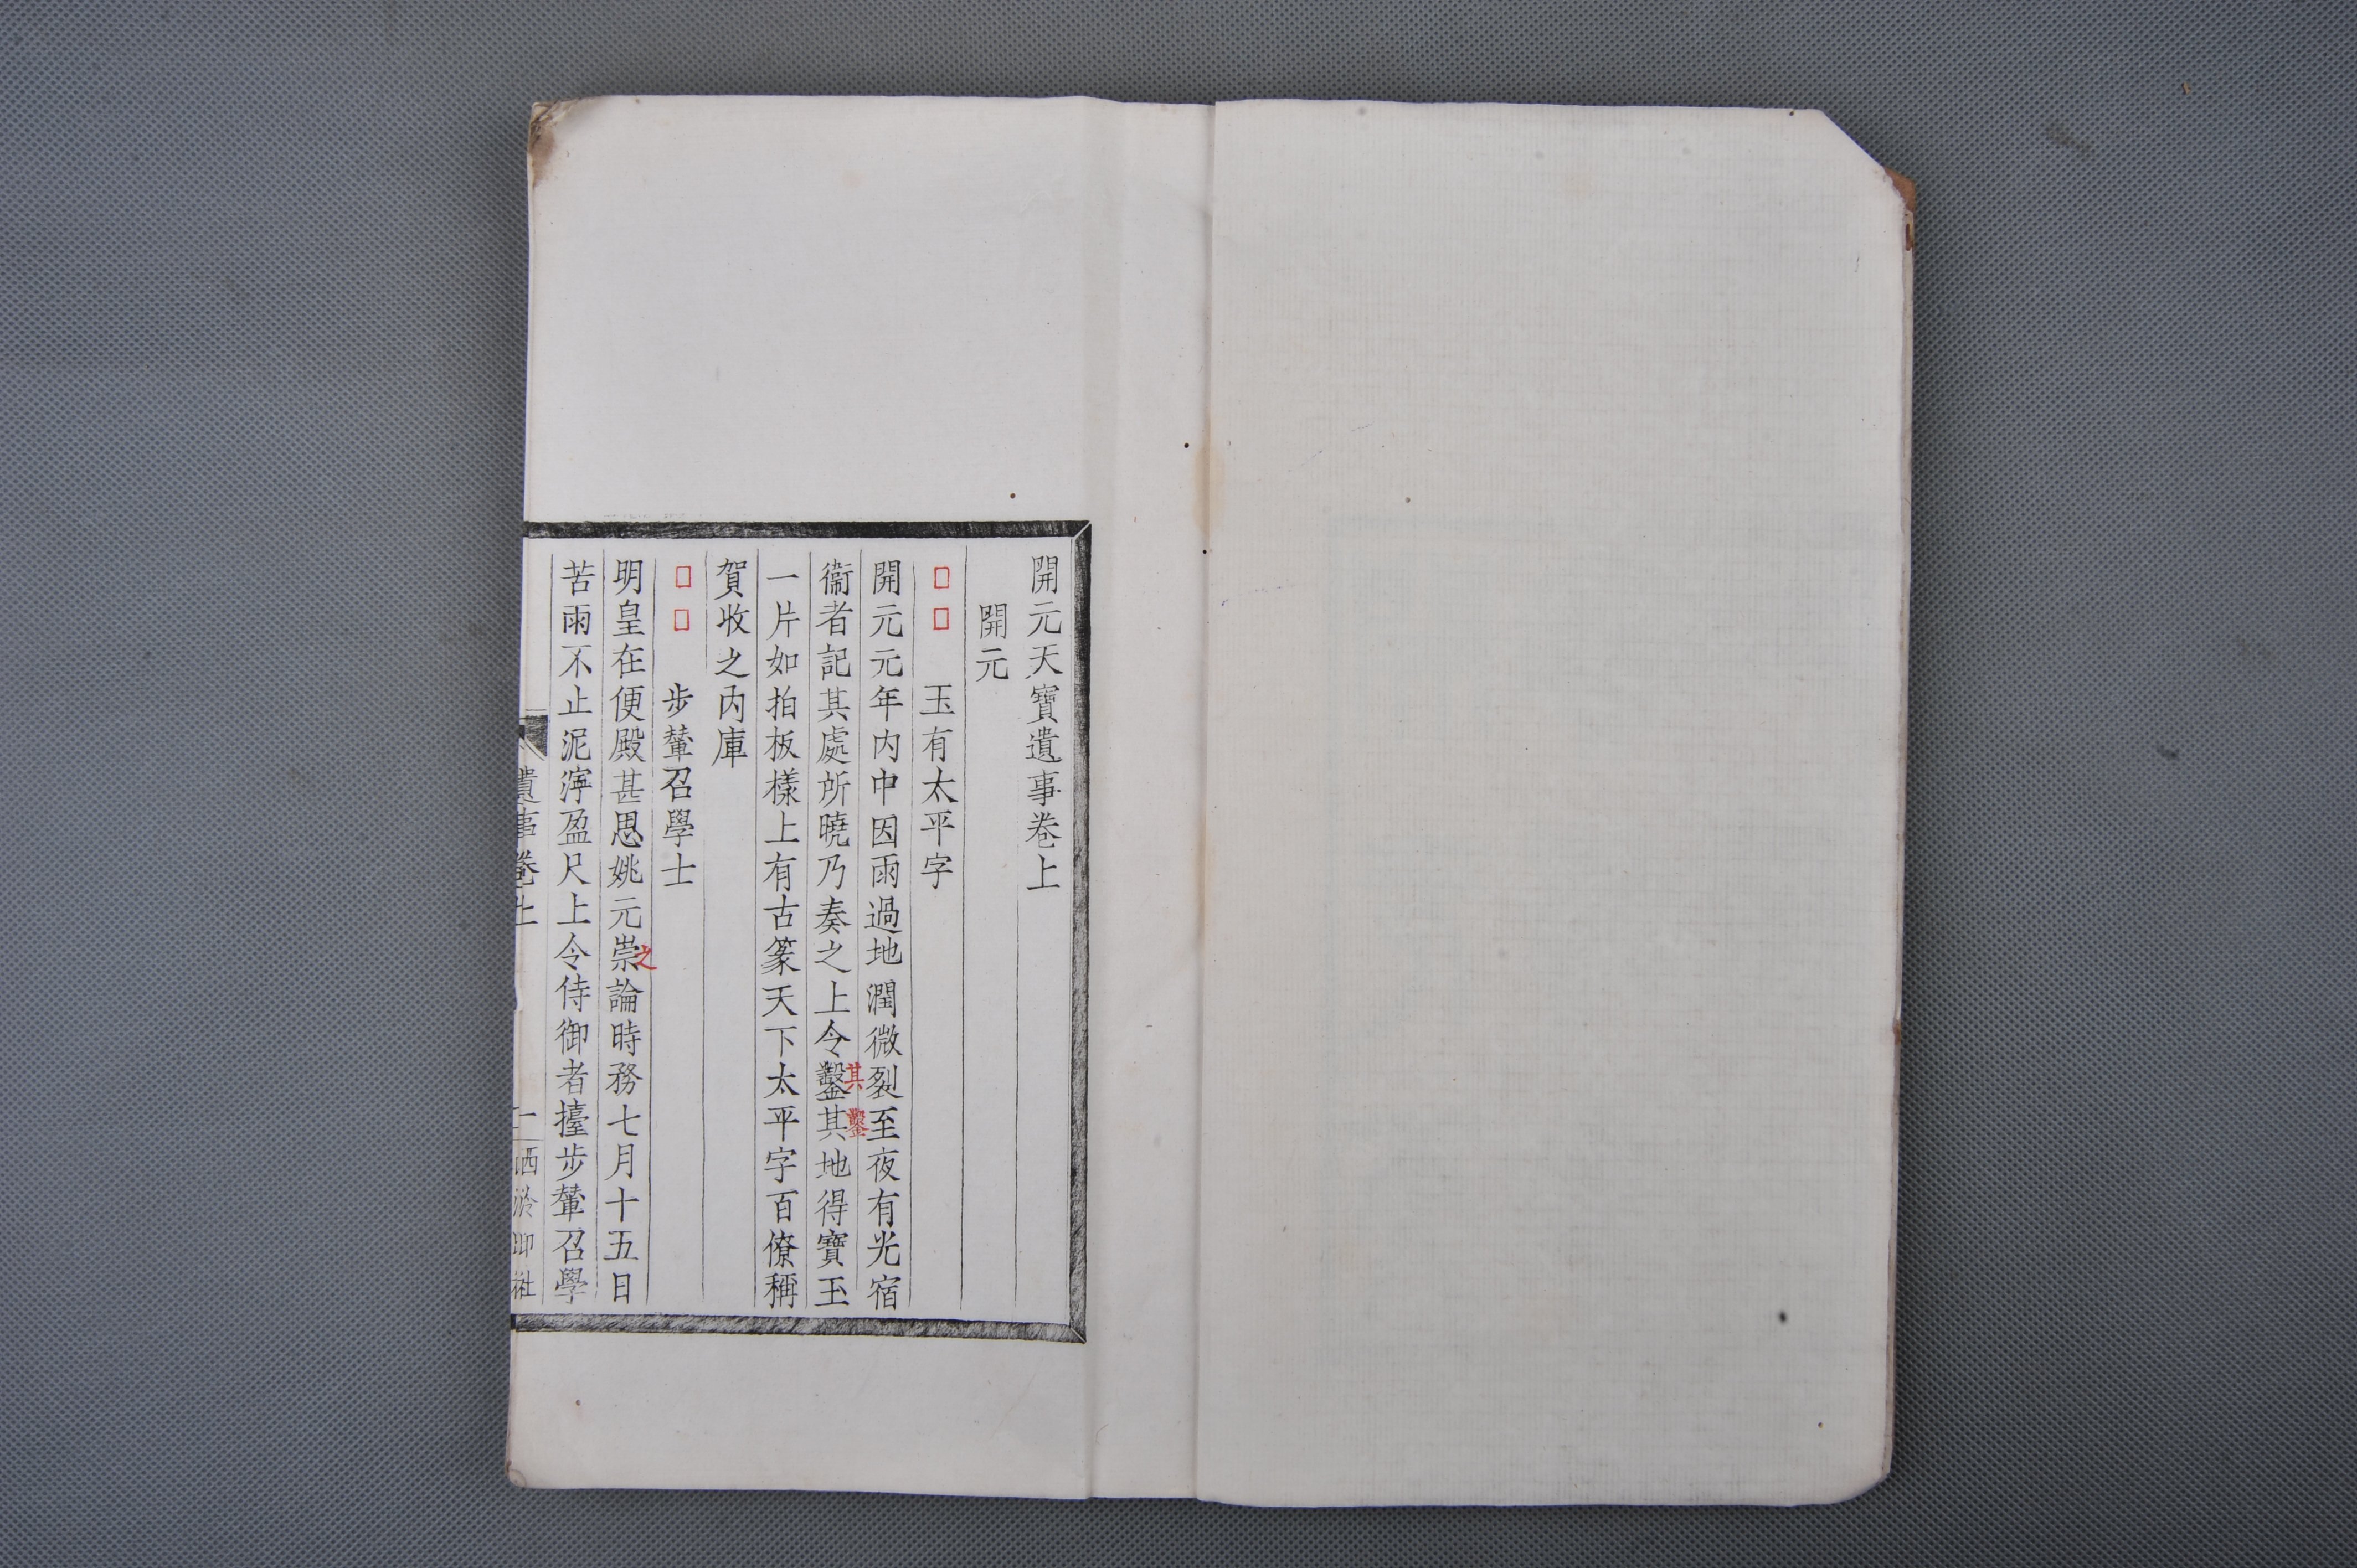 開元天寶遺事卷上
開元
□□　玉有太平字
開元元年内中因雨過地潤微裂至夜有光宿
其鑿
衞者記其處所曉乃奏之上令鑿其地得寶玉
一片如拍板樣上有古篆天下太平字百僚稱
賀收之内庫
□□　步輦召學士
之
明皇在便殿甚思姚元崇論時務七月十五日
苦雨不止泥濘盈尺上令侍御者擡步輦召學
遺事卷上
一
西泠印社